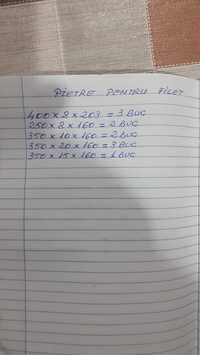 PIETRE PENTRU FILET
400 x 8 x 203 = 3 BUC
250 x 8 x 160 = 2 BUC
350 x 10 x 160 = 2 BUC
350 x 20 x 160 = 3 BUC
350 x 15 x 160 = 1 BUC